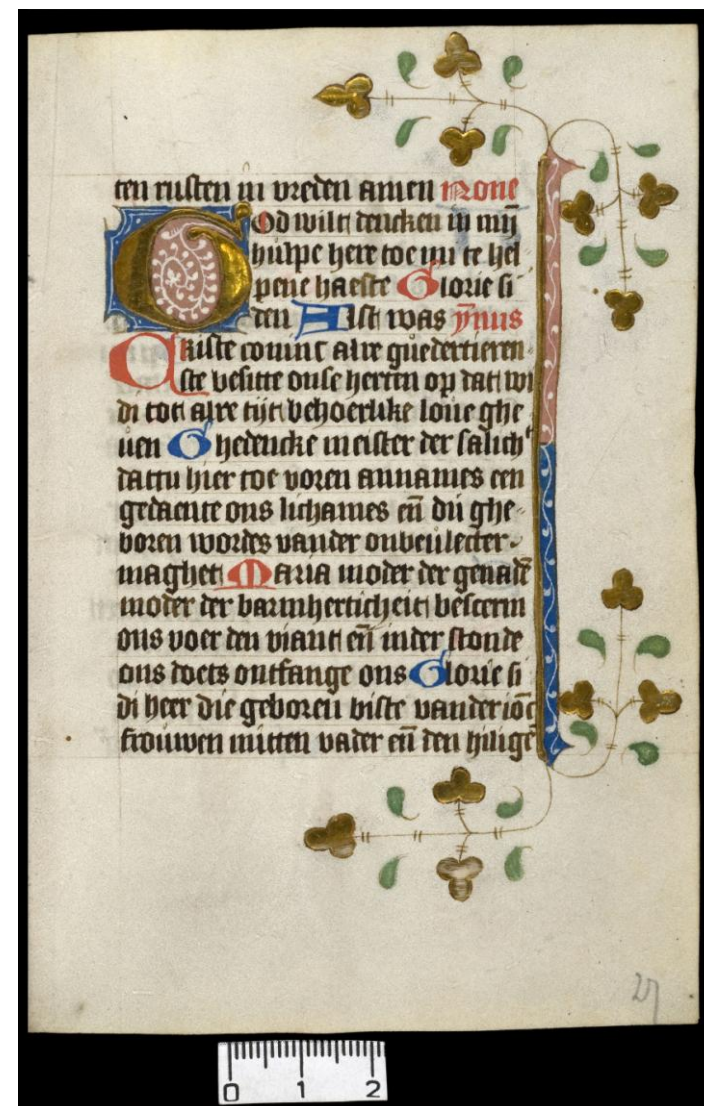 ten rusten in vreden amen None
God wilt dencken in mijn
hulpe here toe mi te hel
pene haeste Glorie si
den Alst was ẏmnus
kiste comint alre guedertieren
ste besitte onse herten op dat wi
di tot alre tijt behoerlike loue ghe
uen Ghedencke meister der salich
dattu hier toe voren annames een
gedaente ons lichames eñ du ghe
boren wordes vander onbeulecter
maghet Maria moder der genadē
moder der barmherticheit bescerm
ons voer den viant eñ inder stonde
ons doets ontfange ons Glorie si
di heer die geboren biste vander iōc
frouwen mitten vader eñ den hiligē
27
0 1 2